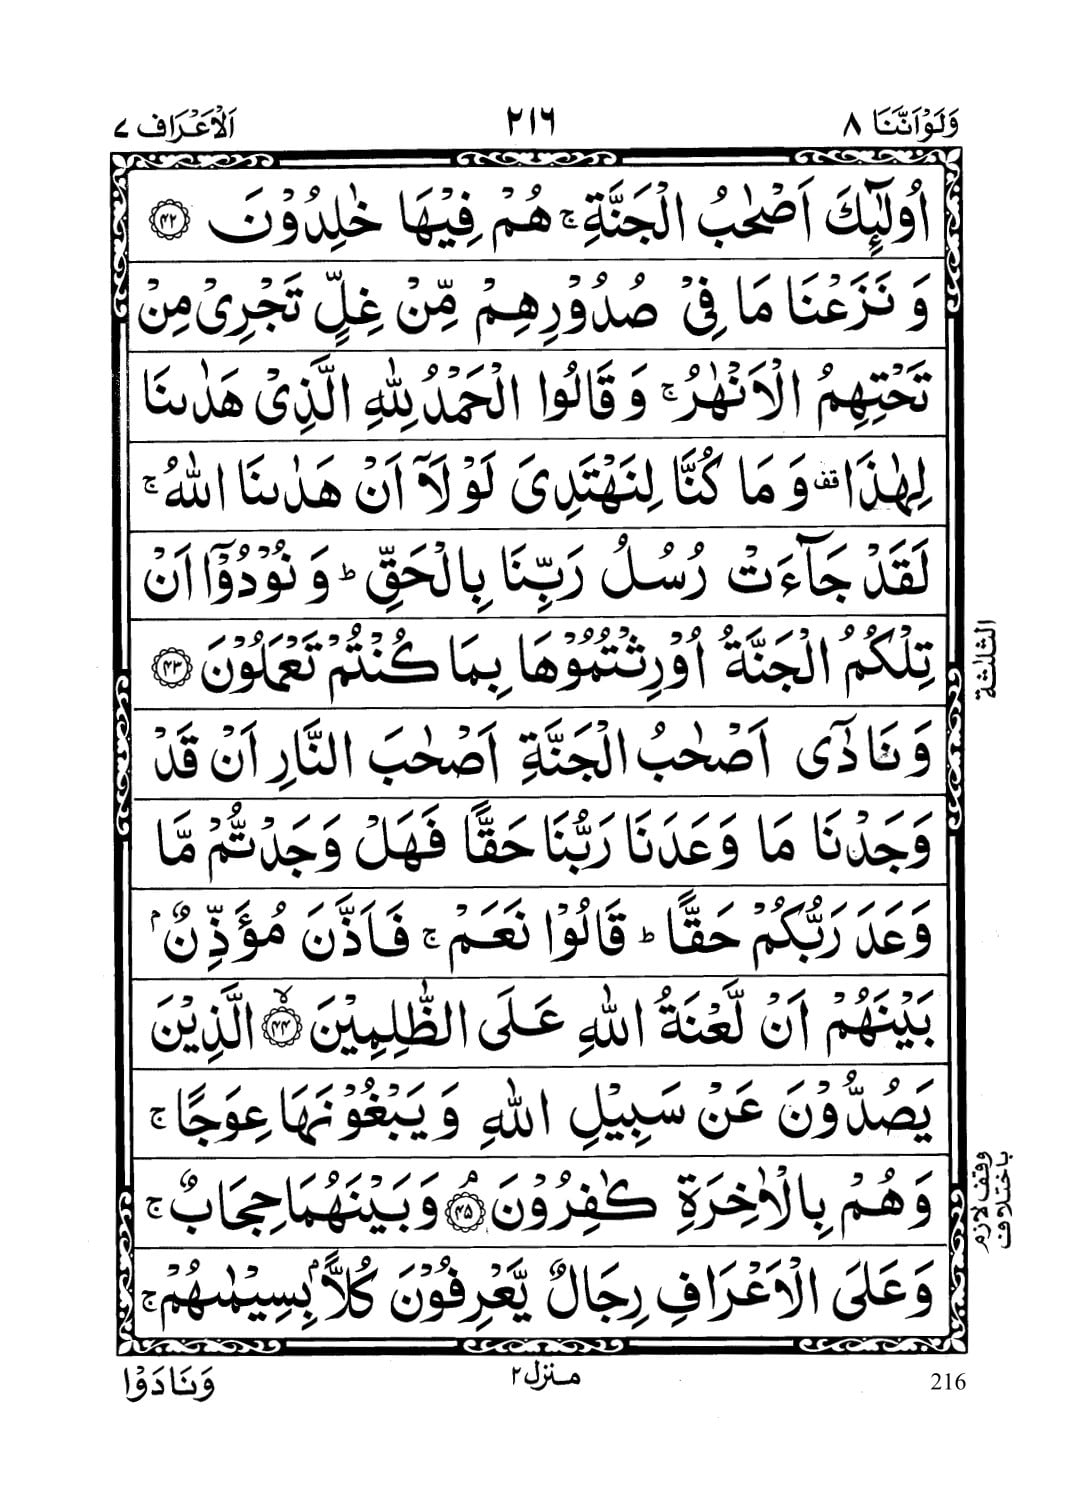 وَلَوْاَنَّنَا ٨
٢١٦
اَلْاَعْرَاف ٧
اُولٰٓئِكَ اَصْحٰبُ الْجَنَّةِ ۚ هُمْ فِيْهَا خٰلِدُوْنَ ﴿۴۲﴾
وَ نَزَعْنَا مَا فِيْ صُدُوْرِهِمْ مِّنْ غِلٍّ تَجْرِيْ مِنْ
تَحْتِهِمُ الْاَنْهٰرُ ۚ وَ قَالُوا الْحَمْدُ لِلّٰهِ الَّذِيْ هَدٰىنَا
لِهٰذَا قف وَ مَا كُنَّا لِنَهْتَدِيَ لَوْلَاۤ اَنْ هَدٰىنَا اللّٰهُ ۚ
لَقَدْ جَآءَتْ رُسُلُ رَبِّنَا بِالْحَقِّ ؕ وَ نُوْدُوْۤا اَنْ
تِلْكُمُ الْجَنَّةُ اُوْرِثْتُمُوْهَا بِمَا كُنْتُمْ تَعْمَلُوْنَ ﴿۴۳﴾
الثلثة
وَ نَادٰۤى اَصْحٰبُ الْجَنَّةِ اَصْحٰبَ النَّارِ اَنْ قَدْ
وَجَدْنَا مَا وَعَدَنَا رَبُّنَا حَقًّا فَهَلْ وَجَدْتُّمْ مَّا
وَعَدَ رَبُّكُمْ حَقًّا ؕ قَالُوْا نَعَمْ ۚ فَاَذَّنَ مُؤَذِّنٌۢ
بَيْنَهُمْ اَنْ لَّعْنَةُ اللّٰهِ عَلَى الظّٰلِمِيْنَ ﴿۴۴﴾ۙ الَّذِيْنَ
يَصُدُّوْنَ عَنْ سَبِيْلِ اللّٰهِ وَ يَبْغُوْنَهَا عِوَجًا ۚ
وَ هُمْ بِالْاٰخِرَةِ كٰفِرُوْنَ ﴿۴۵﴾ۘ وَ بَيْنَهُمَا حِجَابٌ ۚ
وقف لازم
باختلاف
وَ عَلَى الْاَعْرَافِ رِجَالٌ يَّعْرِفُوْنَ كُلًّاۢ بِسِيْمٰىهُمْ ۚ
وَنَادَوْا
منزل ٢
216